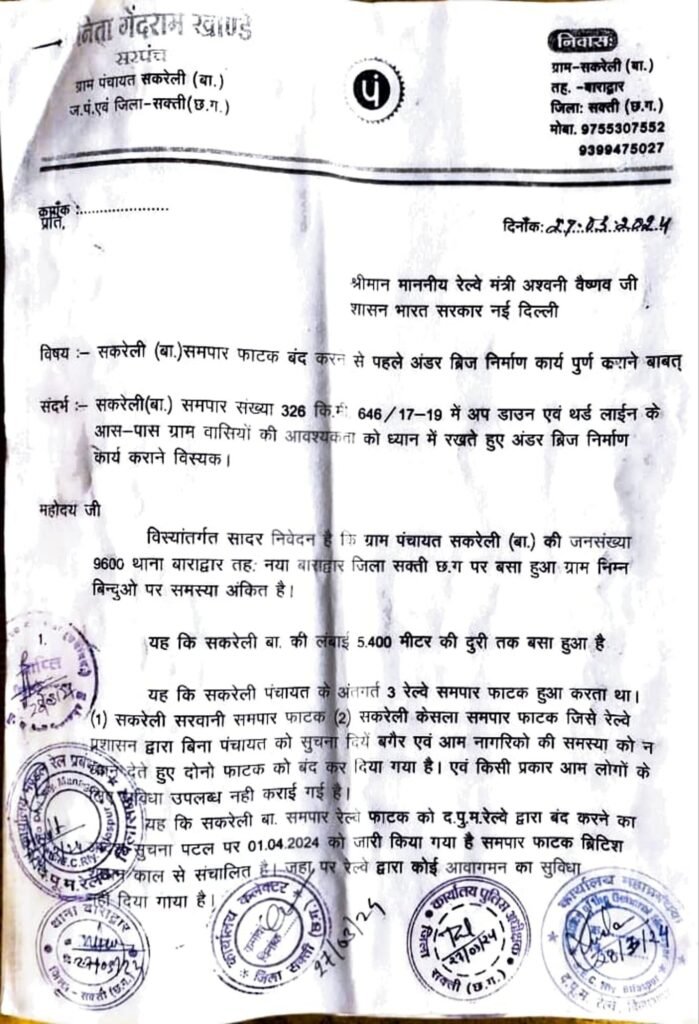 निता गेंदराम खाण्डे
सरपंच
ग्राम पंचायत सकरेली (बा.)
ज.पं.एवं जिला-सक्ती(छ.ग.)
पं
निवासः
ग्राम-सकरेली (बा.)
तह. -बाराद्वार
जिलाः सक्ती (छ.ग.)
मोबा. 9755307552
9399475027
क्रमाँक :.....................
प्रति,
दिनाँकः 27.03.2024
श्रीमान माननीय रेल्वे मंत्री अश्वनी वैष्णव जी
शासन भारत सरकार नई दिल्ली
विषय :– सकरेली (बा.)समपार फाटक बंद करन से पहले अंडर ब्रिज निर्माण कार्य पुर्ण कराने बाबत्
संदर्भ :– सकरेली(बा.) समपार संख्या 326 कि.मी 646/17–19 में अप डाउन एवं थर्ड लाईन के
आस-पास ग्राम वासियों की आवश्यकता को ध्यान में रखते हुए अंडर ब्रिज निर्माण
कार्य कराने विस्यक।
महोदय जी
विस्यांतर्गत सादर निवेदन है कि ग्राम पंचायत सकरेली (बा.) की जनसंख्या
9600 थाना बाराद्वार तह: नया बाराद्वार जिला सक्ती छ.ग पर बसा हुआ ग्राम निम्न
बिन्दुओ पर समस्या अंकित है।
1. यह कि सकरेली बा. की लंबाई 5.400 मीटर की दुरी तक बसा हुआ है
यह कि सकरेली पंचायत के अंतगर्त 3 रेल्वे समपार फाटक हुआ करता था।
(1) सकरेली सरवानी समपार फाटक (2) सकरेली केसला समपार फाटक जिसे रेल्वे
प्रशासन द्वारा बिना पंचायत को सुचना दियें बगैर एवं आम नागरिको की समस्या को न
देते हुए दोनो फाटक को बंद कर दिया गया है। एवं किसी प्रकार आम लोगों के
सुविधा उपलब्ध नही कराई गई है।
यह कि सकरेली बा. समपार रेल्वे फाटक को द.पु.म.रेल्वे द्वारा बंद करने का
सुचना पटल पर 01.04.2024 को जारी किया गया है समपार फाटक ब्रिटिश
काल से संचालित है। जहा पर रेल्वे द्वारा कोई आवागमन का सुविधा
नही दिया गया है।
थाना बाराद्वार
27/03/24
जिला- सक्ती (छ.ग.)
कार्यालय कलेक्टर
जिला सक्ती
27/03/24
कार्यालय पुलिस अधीक्षक
27/03/24
जिला सक्ती (छ.ग.)
कार्यालय महाप्रबंधक
General
28/3/24
Bilaspur
द.पु.म. रेल्वे